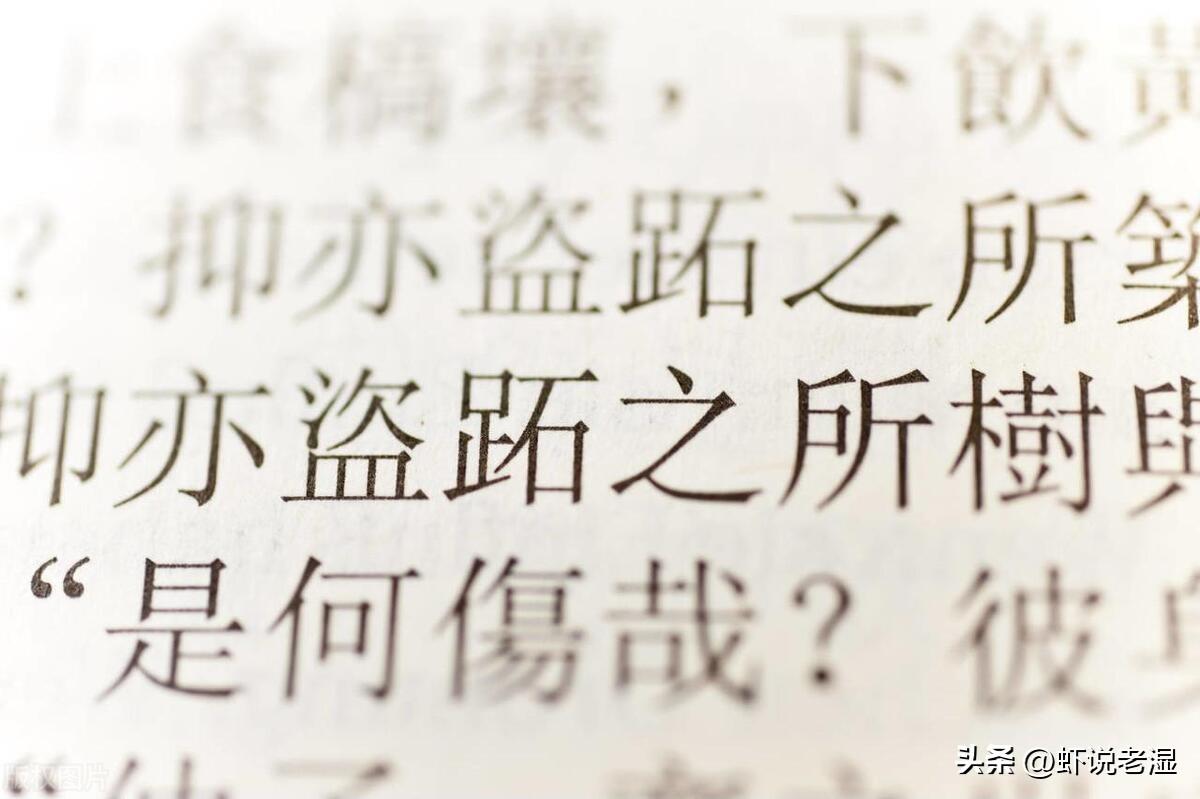 上食槁壤，下飲黃
？抑亦盜跖之所築
抑亦盜跖之所樹與
“是何傷哉？彼身
“仲子
版权图片
头条 @虾说老湿